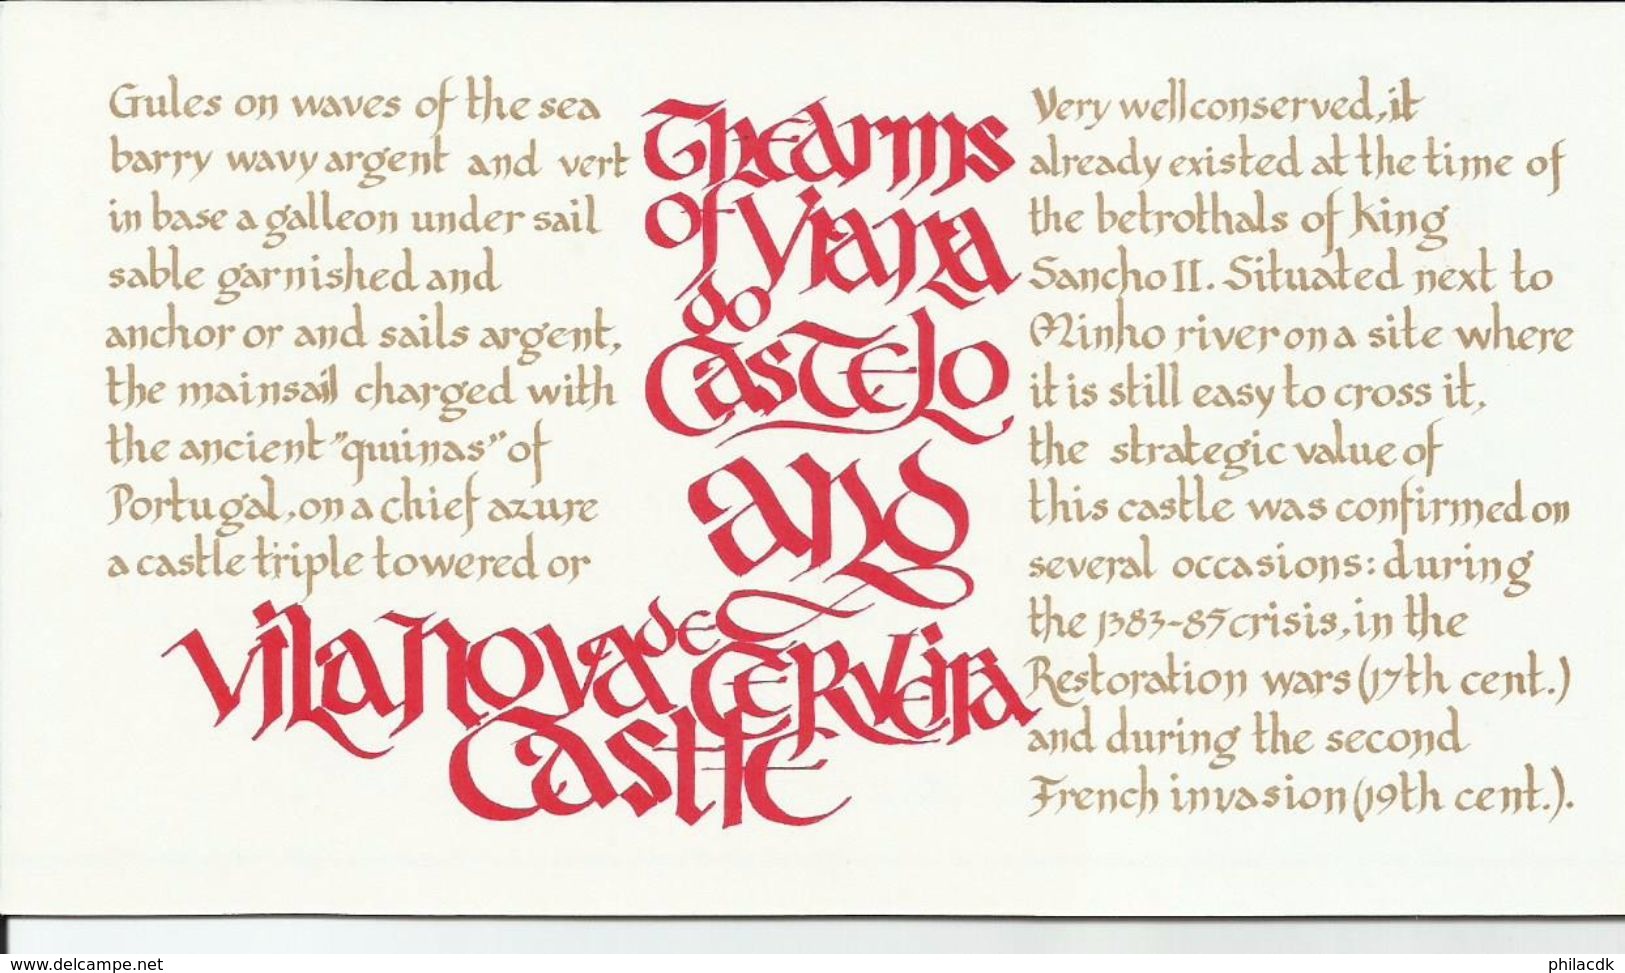 Gules on waves of the sea
barry wavy argent and vert
in base a galleon under sail
sable garnished and
anchor or and sails argent,
the mainsail charged with
the ancient "quinas" of
Portugal, on a chief azure
a castle triple towered or
The arms
of Viana
do
Castelo
and
Vila Nova de
Cerveira
Castle
Very well conserved, it
already existed at the time of
the betrothals of King
Sancho II. Situated next to
Minho river on a site where
it is still easy to cross it,
the strategic value of
this castle was confirmed on
several occasions: during
the 1383-85 crisis, in the
Restoration wars (17th cent.)
and during the second
French invasion (19th cent.).
www.delcampe.net
philacdk